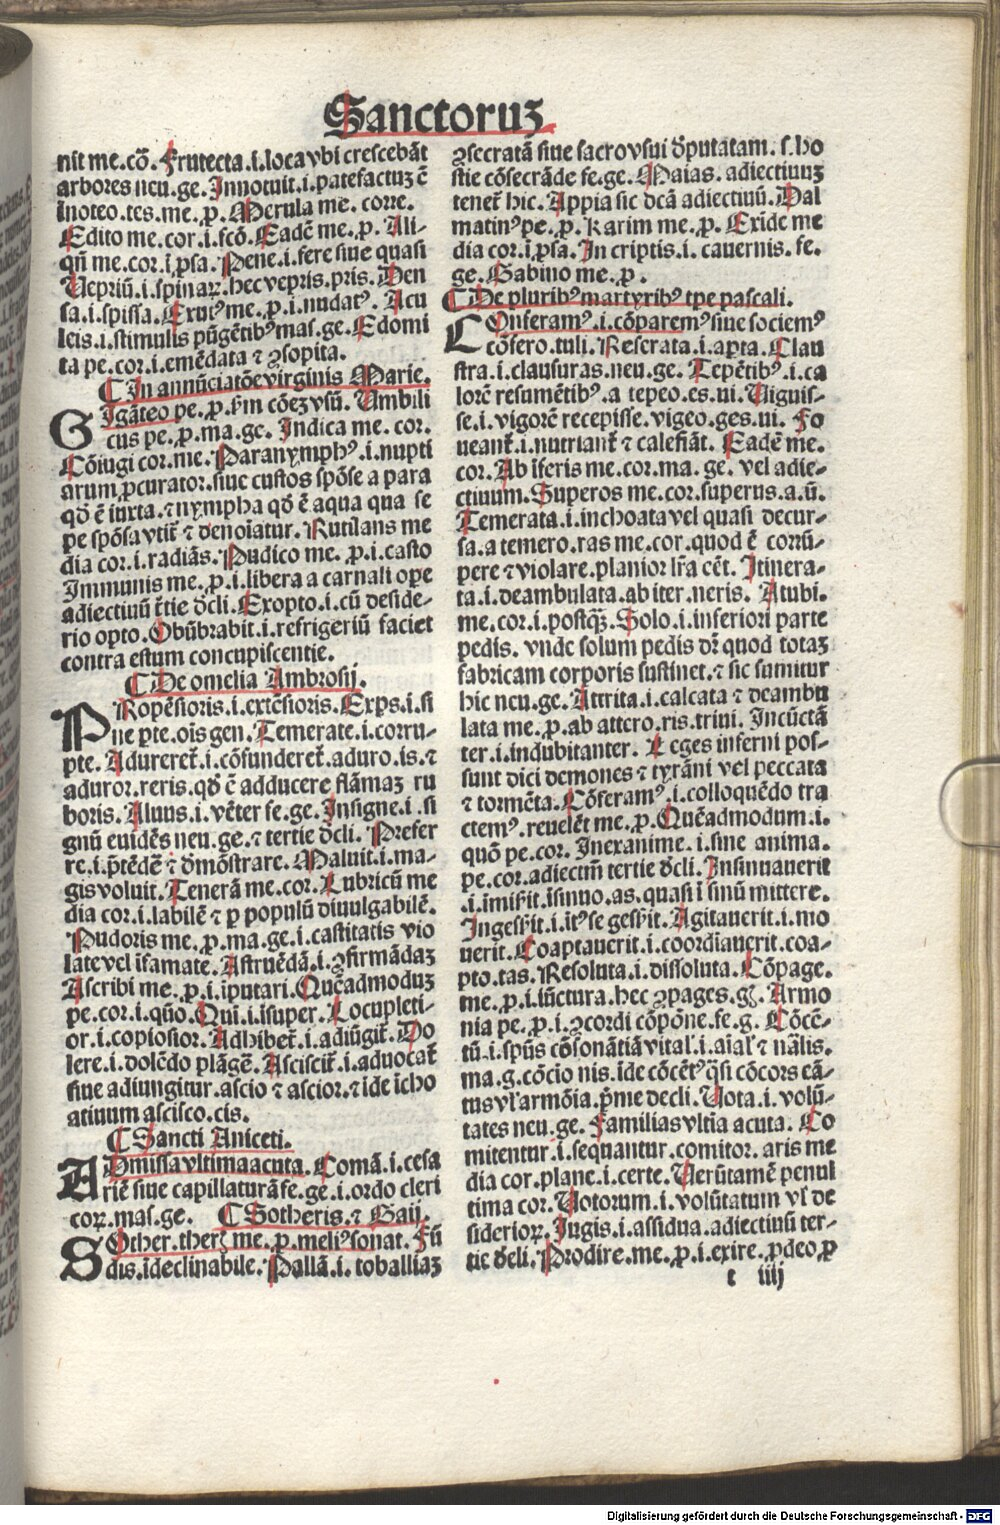 Sanctoruꝫ
nit me.cō. Frutecta.i.loca vbi crescebāt
arbores neu.ge. Innotuit.i.patefactuꝫ ē
īnoteo.tes.me.ꝓ. Merula me. corre.
Edito me.cor.i.scō. Eadē me.ꝓ. Ali-
qn̄ me.cor.i ꝓsa. Pene.i.fere siue quasi
Uepriū.i.spinaꝝ.hec vepris.pris. Den
sa.i.spissa. Exutꝰ me.ꝓ.i.nudatꝰ. Acu
leis.i.stimulis pūgētibꝰ mas.ge. Edomi
ta pe.cor.i.emēdata ⁊ ꝯsopita.
¶ In annūciatōe virginis Marie.
Gigāteo pe.ꝓ. hm̄ cōeꝫ vsū. Umbili
cus pe.ꝓ.ma.ge. Indica me. cor.
Cōiugi cor.me. Paranymphꝰ.i.nupti
arum ꝓcurator.siue custos spōse a para
qd̄ ē iuxta.⁊ nympha qd̄ ē aqua qua se
pe spōsa vtit̄ ⁊ denoīatur. Rutilans me
dia cor.i.radiās. Pudico me. ꝓ.i.casto
Immunis me.ꝓ.i.libera a carnali oꝑe
adiectiuū t̄tie d̄cli. Exopto.i.cū deside-
rio opto. Obūbrabit.i.refrigeriū faciet
contra estum concupiscentie.
¶ De omelia Ambrosij.
PRopēsioris.i.extēsioris. Exps.i.si
ne ꝑte.ois gen. Temerate.i.corru-
pte. Adureret̄.i.cōfunderet̄.aduro.is.⁊
aduror.reris.qd̄ ē adducere flāmaꝫ ru
boris. Aluus.i.vēter fe.ge. Insigne.i.si
gnū euidēs neu.ge.⁊ tertie d̄cli. Prefer
re.i.p̄tēdē ⁊ d̄mōstrare. Maluit.i.ma-
gis voluit. Tenerā me.cor. Lubricū me
dia cor.i.labilē ⁊ ꝑ populū diuulgabilē.
Pudoris me.ꝓ.ma.ge.i.castitatis vio
late vel īfamate. Astruēdā.i.ꝯfirmādaꝫ
Ascribi me.ꝓ.i.iputari. Quēadmoduꝫ
pe.cor.i.quō. Qui.i.īsuper. Locupleti-
or.i.copiosior. Adhibet̄.i.adiūgit̄. Do
lere.i.dolēdo plāgē. Asciscit̄.i.aduocat̄
siue adiungitur.ascio ⁊ ascior.⁊ īde īcho
atiuum ascisco.cis.
¶ Sancti Aniceti.
ADmissa vltima acuta. Comā.i.cesa
riē siue capillaturā fe.ge.i.ordo cleri
coꝝ.mas.ge. ¶ Sotheris.⁊ Gaij.
SOther.therꝭ me.ꝓ.meliꝰ sonat. Fū
dis.īdeclinabile. Pallā.i.toballiaꝫ
ꝯsecratā siue sacro vsui d̄putatam.s.ho
stie cōsecrāde fe.ge. Maias.adiectiuuꝫ
tenet̄ hic. Appia sic dcā adiectiuū. Dal
matinꝰ pe.ꝓ. Karim me.ꝓ. Exide me
dia cor.i ꝓsa. In criptis.i.cauernis.fe.
ge. Gabino me.ꝓ.
¶ De pluribꝰ martyribꝰ tꝑe pascali.
COnferamꝰ.i.cōparemꝰ siue sociemꝰ
cōfero.tuli. Reserata.i.aꝑta. Clau
stra.i.clausuras.neu.ge. Tepētibꝰ.i.ca
lorē resumētibꝰ.a tepeo.es.ui. Uiguis-
se.i.vigorē recepisse.vigeo.ges.ui. Fo
ueant̄.i.nutriant̄ ⁊ calefiāt. Eadē me.
cor. Ab īferis me.cor.ma.ge. vel adie-
ctiuum. Superos me.cor.superus.a.ū.
Temerata.i.inchoata vel quasi decur-
sa.a temero.ras me.cor.quod ē corrū-
pere ⁊ violare.planior lr̄a cēt. Itinera-
ta.i.deambulata.ab iter.neris. Atubi.
me.cor.i.postqꝫ. Solo.i.inferiori parte
pedis. vnde solum pedis dr̄ quod totaꝫ
fabricam corporis sustinet.⁊ sic sumitur
hic neu.ge. Attrita.i.calcata ⁊ deambu
lata me.ꝓ.ab attero.ris.triui. Incūctā
ter.i.indubitanter. Leges inferni pos-
sunt dici demones ⁊ tyrāni vel peccata
⁊ tormēta. Cōferamꝰ.i.colloquēdo tra
ctemꝰ.reuelēt me.ꝓ. Quēadmodum.i.
quō pe.cor. Inexanime.i.sine anima.
pe.cor.adiectm̄ tertie d̄cli. Insinuauerit
.i.imisit.īsinuo.as.quasi ī sinū mittere.
Ingessit.i.itꝰ se gessit. Agitauerit.i.mo
uerit. Coaptauerit.i.coordiauerit.coa-
pto.tas. Resoluta.i.dissoluta. Cōpage.
me.ꝓ.i.iūctura.hec ꝯpages.gꝭ. Armo
nia pe.ꝓ.i.ꝯcordi cōpōne.fe.g. Cōcē-
tū.i.spūs cōsonātiā vital̄.i.aīal̄ ⁊ nālis.
ma.g.cōcio nis.īde cōcētꝰ q̄si cōcors cā-
tus vl̄ armōia.p̄me decli. Uota.i.volū-
tates neu.ge. Familias vltīa acuta. Co
mitentur.i.sequantur.comitor.aris me
dia cor.plane.i.certe. Uerūtamē penul
tima cor. Uotorum.i.volūtatum vl̄ de
sideriorꝝ. Jugis.i.assidua.adiectiuū ter-
tie d̄cli. Prodire.me.ꝓ.i.exire.ꝓdeo.ꝓ
t iiij
Digitalisierung gefördert durch die Deutsche Forschungsgemeinschaft - DFG